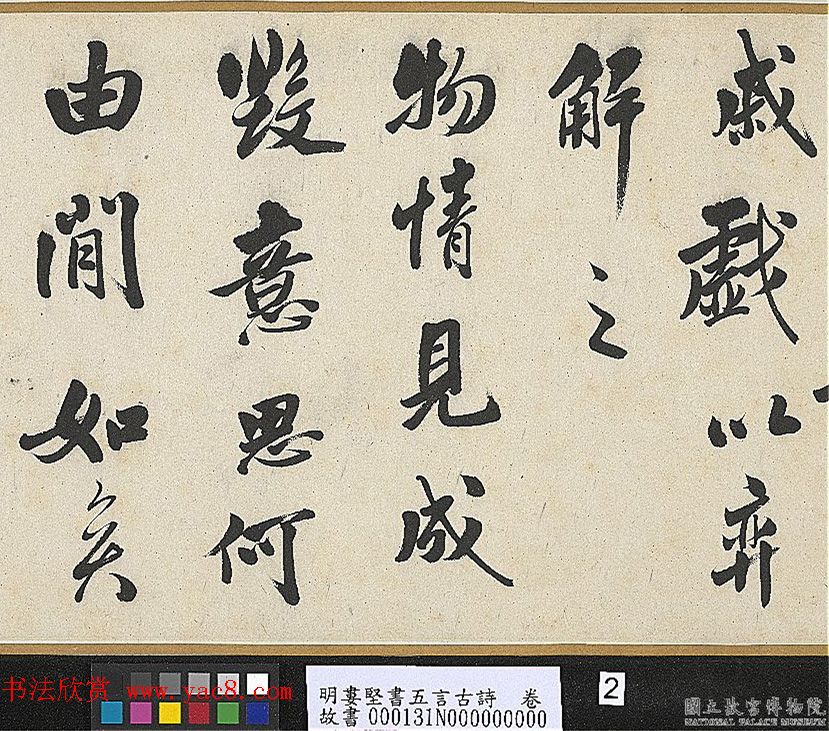 戚戲以弈
解之
物情見成
毀意思何
由閒如
书法欣赏 www.yac8.com
明婁堅書五言古詩 卷
故書 000131N000000000
2
國立故宮博物院
NATIONAL PALACE MUSEUM